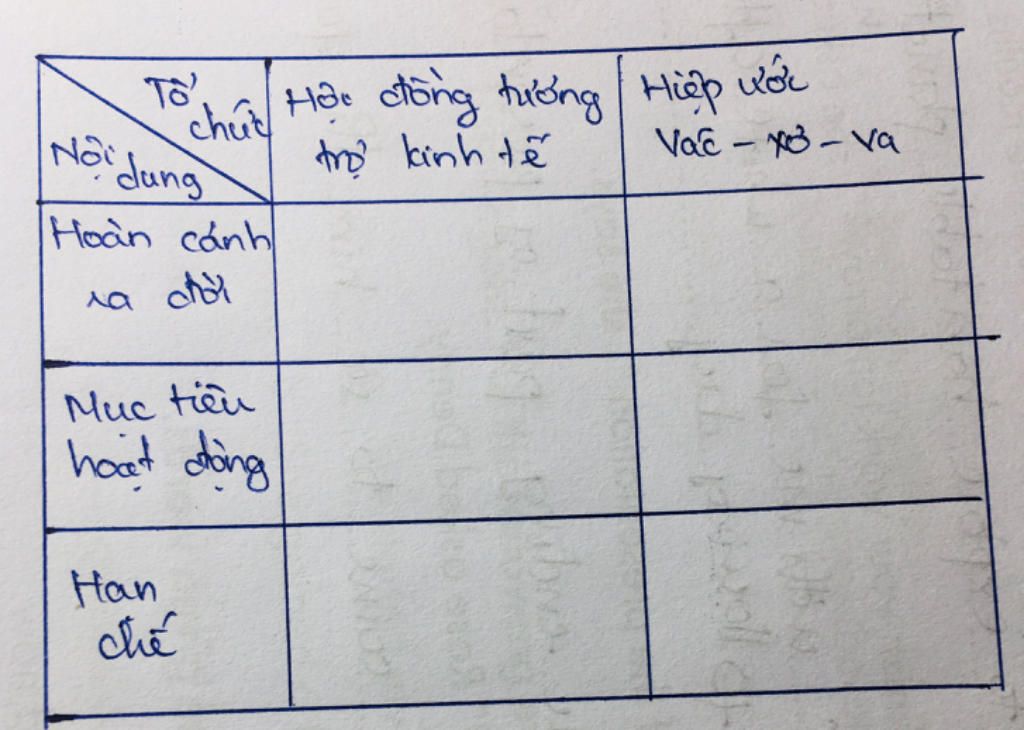 Tổ chức
Nội dung
Hội đồng tương trợ kinh tế
Hiệp ước Vac - xơ - va
Hoàn cảnh ra đời
Mục tiêu hoạt động
Hạn chế